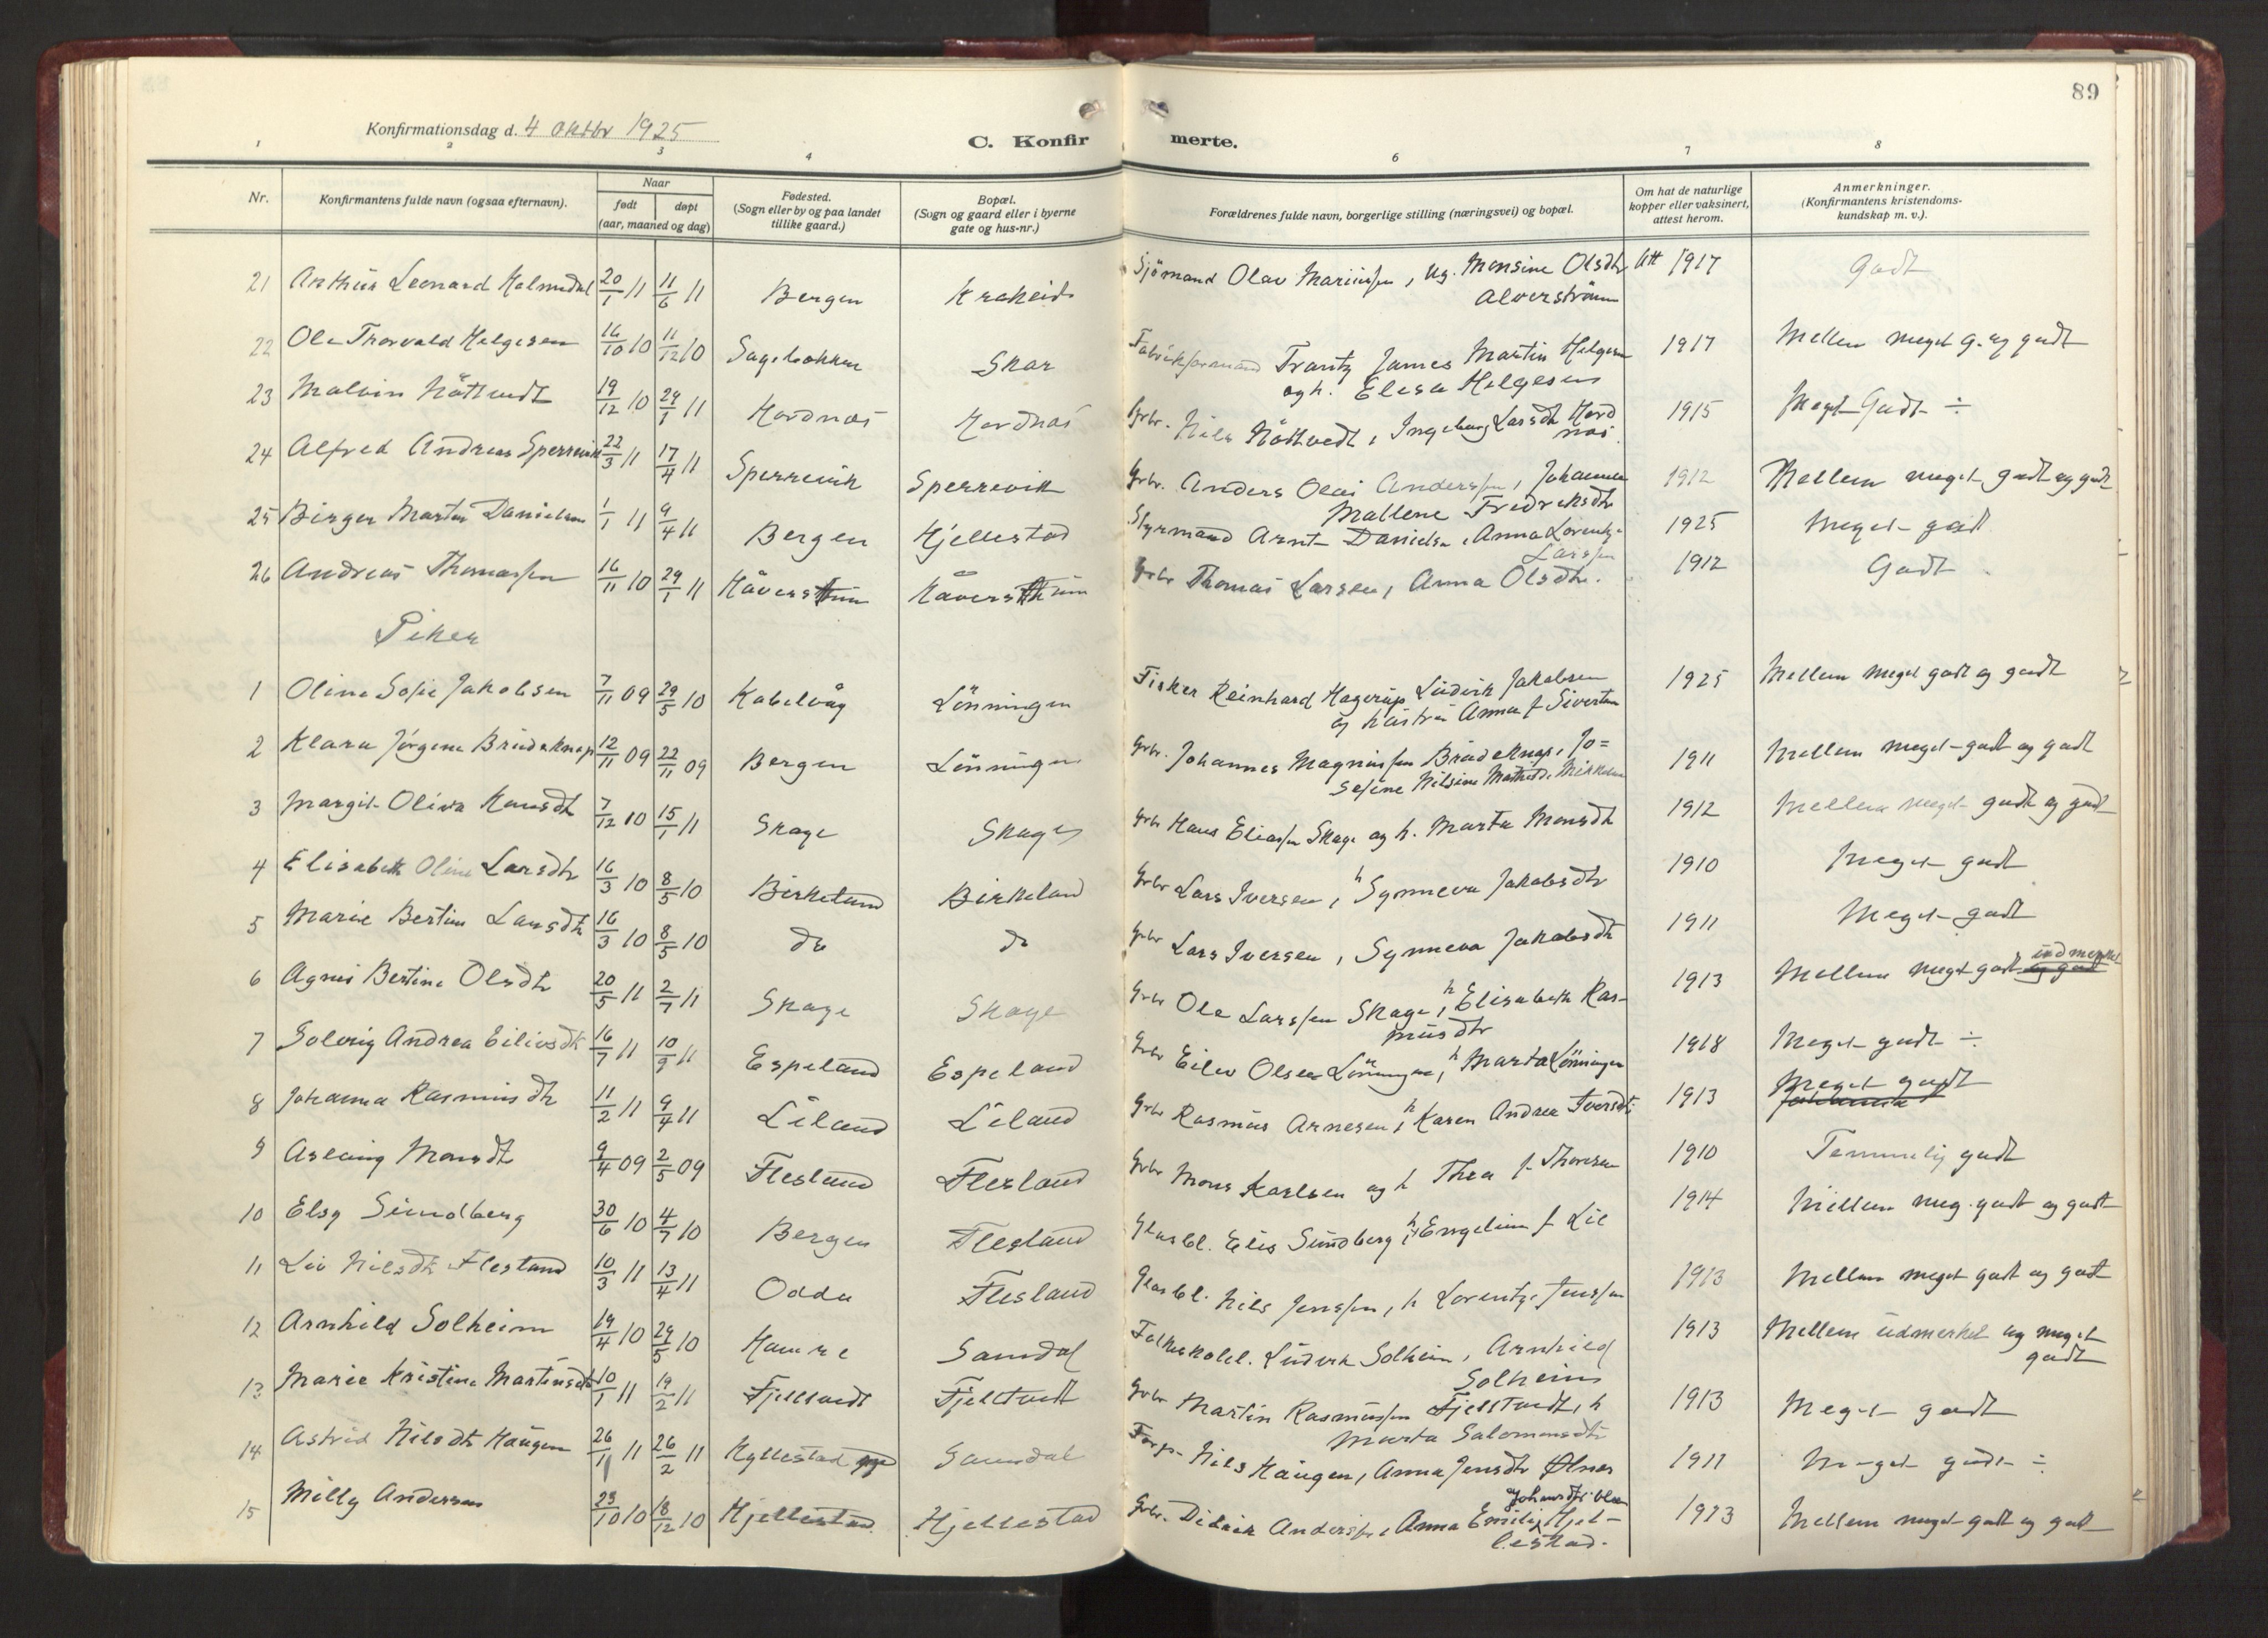 89
Konfirmationsdag d. 4 Oktbr 1925
C. Konfirmerte.
1 2 3 4 6 7 8
Nr. Konfirmantens fulde navn (ogsaa efternavn). Naar født døpt (aar, maaned og dag) Fødested. (Sogn eller by og paa landet tillike gaard.) Bopæl. (Sogn og gaard eller i byerne gate og hus-nr.) Forældrenes fulde navn, borgerlige stilling (næringsvei) og bopæl. Om hat de naturlige kopper eller vaksinert, attest herom. Anmerkninger. (Konfirmantens kristendoms-kundskap m. v.).
21 Arthur Leonard 20/1 11 11/6 11 Bergen Krokeid Sjömand Olav Mariussen, ug. Monsine Olsdtr Att 1917 Godt
Alverström
22 Ole Thorvald Helgesen 16/10 10 11/12 10 Skar Frantz James Martin Helgesen 1917 Mellem meget g. og godt
og h. Elesa Helgesen
23 Malvin Nöttvedt 19/12 10 29/1 11 Hordnæs Hordnæs Grbr. Nils Nöttvedt, Ingeborg Larsdtr Hord 1915 Meget Godt ÷
næs.
24 Alfred Andreas Sperrevik 22/3 11 17/4 11 Sperrevik Sperrevik Grbr. Anders Olai Anderssen, Johanna 1912 Mellem meget godt og godt
Mallene Fredriksdtr
25 Birger Martin Danielsen 1/1 11 9/4 11 Bergen Hjellestad Styrmand Arnt Danielsen, Anna Lorentze 1925 Meget godt
Larssen
26 Andreas Thomassen 16/11 10 29/1 11 Håversthun Håversthun Grbr Thomas Larsen, Anna Olsdtr. 1912 Godt
Piker
1 Oline Sofie Jakobsen 7/11 09 29/5 10 Kabelvåg Lönningen Fisker Reinhard Hagerup Ludvik Jakobsen 1925 Mellem meget godt og godt
og hustru Anna f. Sivertsen
2 Klara Jörgine Brudeknap 12/11 09 22/11 09 Bergen Lönningen Grbr. Johannes Magnussen Brudeknap, Jo= 1911 Mellem meget godt og godt
sefine Nilsine Mathilde Mikkelsen
3 Margit Oliva Hansdtr 7/12 10 15/1 11 Skage Skage Grbr Hans Eliassen Skage og h. Marta Monsdtr 1912 Mellem meget godt og godt
4 Elisabeth Oline Larsdtr 16/3 10 8/5 10 Birkeland Birkeland Grbr Lars Iversen, h Synneva Jakobsdtr 1910 Meget godt
5 Marie Bertine Larsdtr 16/3 10 8/5 10 do do Grbr Lars Iversen, Synneva Jakobsdtr 1911 Meget godt
6 Agnes Bertine Olsdtr 20/5 11 2/7 11 Skage Skage Grbr Ole Larssen Skage, h Elisabeth Ras- 1913 Mellem meget godt og godt udmerket
musdtr
7 Solveig Andrea Eilivsdtr 16/7 11 10/9 11 Espeland Espeland Grbr Eilev Olsen Lönningen, h Marta Lönningen 1918 Meget godt ÷
8 Johanna Rasmusdtr 11/2 11 9/4 11 Liland Liland Grbr Rasmus Arnesen, h Karen Andrea Iversdtr 1913 Meget godt
Johanna
9 Aslaug Monsdtr 9/4 09 2/5 09 Flesland Flesland Grbr Mons Karlsen og h Thea f. Thoresen 1910 Temmelig godt
10 Elsy Sundberg 30/6 10 4/7 10 Bergen Flesland Glasbl. Elis Sundberg, h Engeline f. Lie 1914 Mellem meg. godt og godt
11 Liv Nilsdtr Flesland 10/3 11 13/4 11 Odda Flesland Glasbl. Nils Jenssen, h Lorentze Jenssen 1913 Mellem meget godt og godt
12 Arnhild Solheim 19/4 10 29/5 10 Hamre Samdal Folkeskolel. Ludvik Solheim, Arnhild 1913 Mellem udmerket og meget
Solheim godt
13 Marie Kristine Martinsdtr 10/1 11 19/2 11 Fjelltvedt Fjelltvedt Grbr Martin Rasmussen Fjelltvedt, h 1913 Meget godt
Marta Salomonsdtr
14 Astrid Nilsdtr Haugen 26/1 11 26/2 11 Hyllestad Samdal Forp. Nils Haugen, Anna Jensdtr Ølnes 1911 Meget godt ÷
15 Milly Andersen 23/10 10 18/12 10 Hjellestad Hjellestad Grbr. Didrik Anderssen, Anna Emilie Hjel- 1923 Mellem meget godt og godt
lestad.